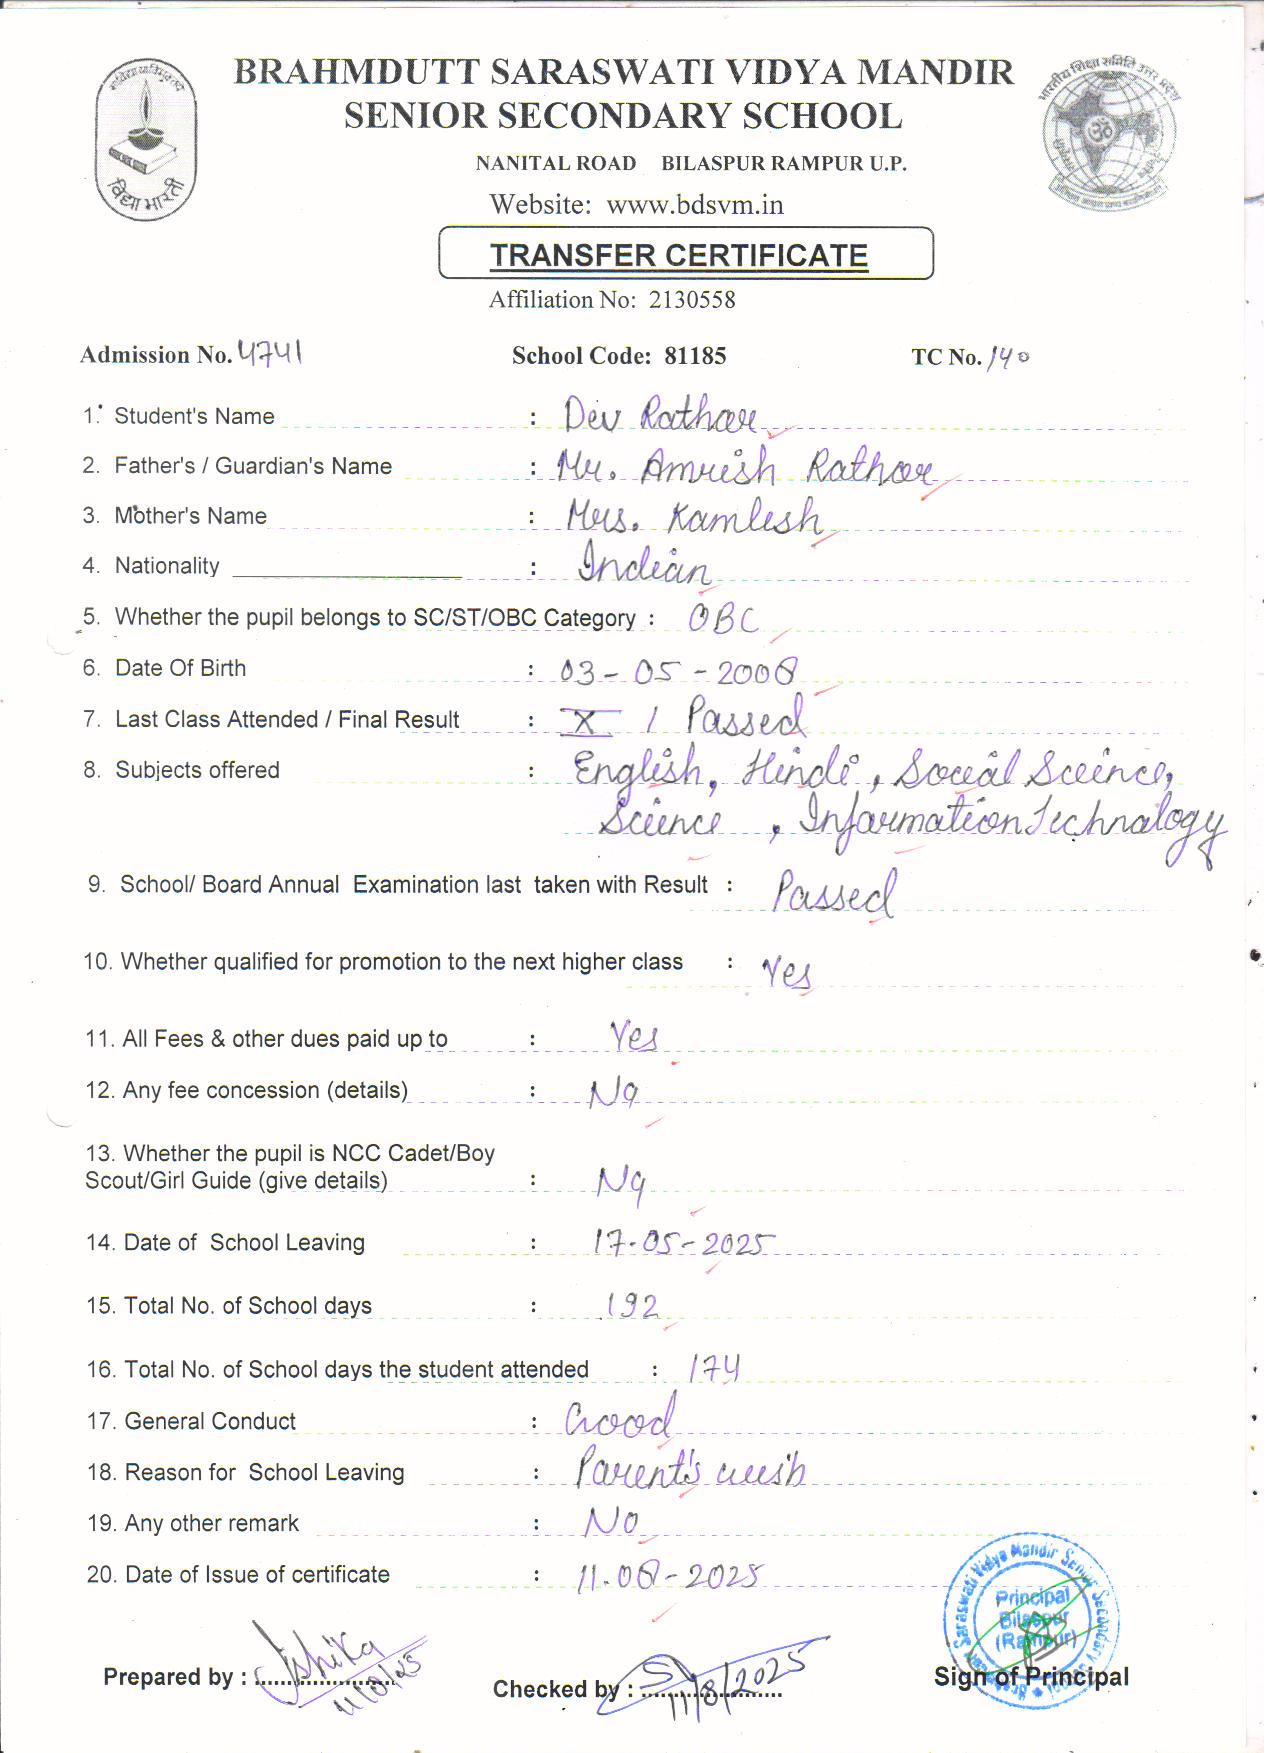 BRAHMDUTT SARASWATI VIDYA MANDIR
SENIOR SECONDARY SCHOOL
NANITAL ROAD BILASPUR RAMPUR U.P.
Website: www.bdsvm.in
विद्या भारती
भारतीय शिक्षा समिति उत्तर प्रदेश
TRANSFER CERTIFICATE
Affiliation No: 2130558
Admission No. 4741 School Code: 81185 TC No. 140
1. Student's Name : Dev Rathor
2. Father's / Guardian's Name : Mr. Amrish Rathor
3. Mother's Name : Mrs. Kamlesh
4. Nationality : Indian
5. Whether the pupil belongs to SC/ST/OBC Category : OBC
6. Date Of Birth : 03-05-2008
7. Last Class Attended / Final Result : X / Passed
8. Subjects offered : English, Hindi, Social Science,
Science, Information Technology
9. School/ Board Annual Examination last taken with Result : Passed
10. Whether qualified for promotion to the next higher class : Yes
11. All Fees & other dues paid up to : Yes
12. Any fee concession (details) : No
13. Whether the pupil is NCC Cadet/Boy
Scout/Girl Guide (give details) : No
14. Date of School Leaving : 17-05-2025
15. Total No. of School days : 192
16. Total No. of School days the student attended : 174
17. General Conduct : Good
18. Reason for School Leaving : Parent's wish
19. Any other remark : No
20. Date of Issue of certificate : 11-08-2025
Saraswati Vidya Mandir Senior Secondary School
Principal
Bilaspur
(Rampur)
Prepared by : Ishika
Checked by : 11/8/2025
Sign of Principal